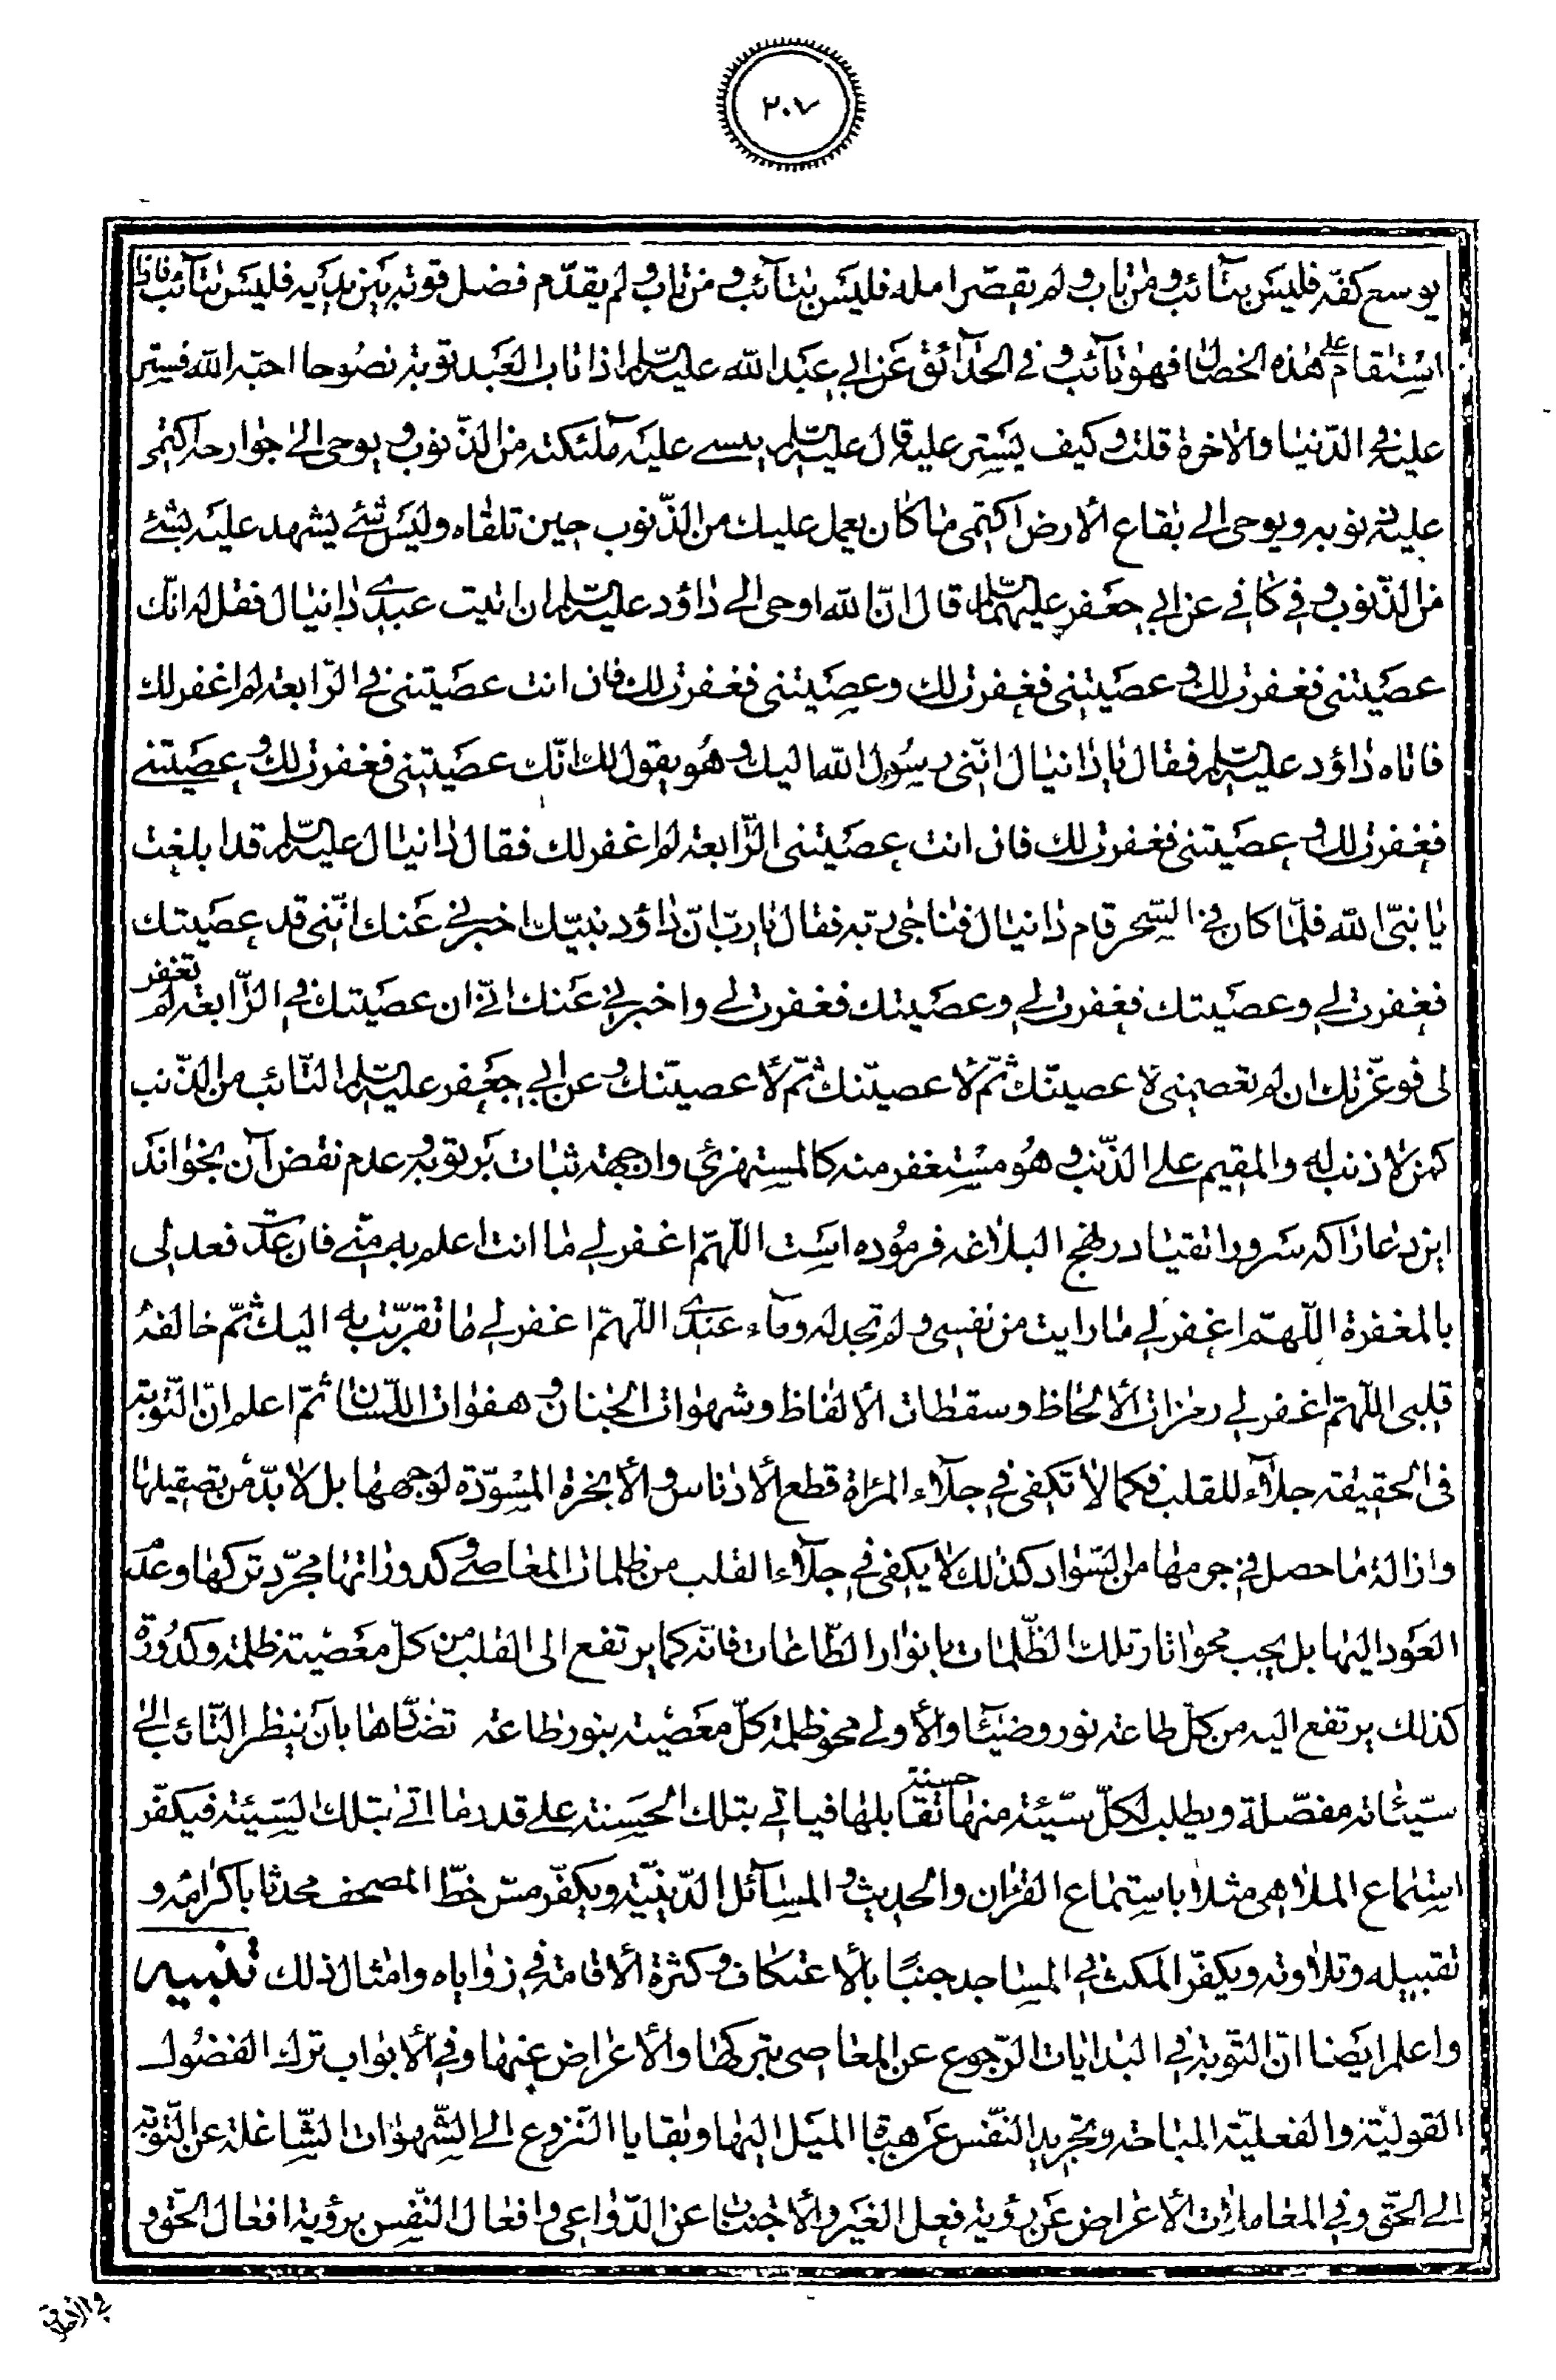 ٢٠٧
يوسع كفّه فليس بتآئب و من تاب و لم يقصّر امله فليس بتآئب و من تاب و لم يقدّم فضل قوته بين يديه فليس بتآئب فاذا
استقام على هذه الخصال فهو تآئب و في الحدآئق عن ابي عبد الله عليه السّلم اذا تاب العبد توبة نصوحا احبّه الله فستر
عليه في الدّنيا والاخرة قلت و كيف يستر عليه قال عليه السّلم ينسى عليه ملئكته من الذّنوب و يوحى الى جوارحه اكتمى
عليه ذنوبه و يوحى الى بقاع الارض اكتمى ما كان يعمل عليك من الذّنوب حين تلقاه وليس شئ يشهد عليه بشئ
من الذّنوب و في كافى عن ابي جعفر عليهما السّلم قال انّ الله اوحى الى داؤد عليه السّلم ان ائت عبدى دانيال فقل له انّك
عصيتنى فغفرت لك و عصيتنى فغفرت لك وعصيتنى فغفرت لك فان انت عصيتنى في الرّابعة لم اغفر لك
فاتاه داؤد عليه السّلم فقال يا دانيال انّنى رسول الله اليك و هو يقول لك انّك عصيتنى فغفرت لك و عصيتنى
فغفرت لك و عصيتنى فغفرت لك فان انت عصيتنى الرّابعة لم اغفر لك فقال دانيال عليه السّلم قد ابلغت
يا نبىّ الله فلمّا كان في السّحر قام دانيال فناجى ربّه فقال يا ربّ انّ داؤد نبيّك اخبرنى عنك انّنى قد عصيتك
فغفرت لى وعصيتك فغفرت لى وعصيتك فغفرت لى واخبرنى عنك انّى ان عصيتك في الرّابعة لم تغفر
لى فوعزّتك ان لم تعصمنى لاعصينّك ثمّ لاعصينّك ثمّ لاعصينّك و عن ابي جعفر عليه السّلم التّائب من الذّنب
كمن لا ذنب له والمقيم على الذّنب و هو مستغفر منه كالمستهزئ و از جهة ثبات بر توبه و عدم نقض آن بخواند
اين دعا را كه سرور اتقيا در نهج البلاغه فرموده است اللّهمّ اغفر لى ما انت اعلم به منّى فان عدت فعد لى
بالمغفرة اللّهمّ اغفر لى ما رايت من نفسى و لم تجد له وفآء عندى اللّهمّ اغفر لى ما تقرّبت به اليك ثمّ خالفه
قلبى اللّهمّ اغفر لى رمزات الالحاظ وسقطات الالفاظ وشهوات الجنان و هفوات اللّسان ثمّ اعلم انّ التّوبة
في الحقيقة جلآء للقلب فكما لا تكفى في جلآء المرآة قطع الادناس و الابخرة المسوّدة لوجهها بل لا بدّ من تصقيلها
وازالة ما حصل في جرمها من السّواد كذلك لا يكفى في جلآء القلب من ظلمات المعاصى و كدوراتها مجرّد تركها و عدم
العود اليها بل يجب محو اثار تلك الظّلمات بانوار الطّاعات فانّه كما يرتفع الى القلب من كلّ معصية ظلمة و كدورة
كذلك يرتفع اليه من كلّ طاعة نور وضيآء والاولى محو ظلمة كلّ معصية بنور طاعة تضادّها بان ينظر التّائب الى
سيّئاته مفصّلة ويطلب لكلّ سيّئة منها حسنة تقابلها فياتى بتلك الحسنة على قدر ما اتى بتلك السّيئة فيكفّر
استماع الملاهى مثلا باستماع القرآن والحديث و المسآئل الدّينيّة ويكفّر مسّ خطّ المصحف محدثا باكرامه و
تقبيله وتلاوته ويكفّر المكث في المساجد جنبًا بالاعتكاف و كثرة الاقامة في زواياه وامثال ذلك تنبيه
واعلم ايضا انّ التّوبة في البدايات الرّجوع عن المعاصى بتركها والاعراض عنها وفي الابواب ترك الفضول
القوليّة والفعليّة المباحة و تجريد النّفس عن هيئة الميل اليها وبقايا النّزوع الى الشّهوات الشّاغلة عن التّوجّه
الى الحقّ و في المعاملات الاعراض عن رؤية فعل الغير والاجتناب عن الدّواعى وافعال النّفس برؤية افعال الحقّ و
في الاخلاق